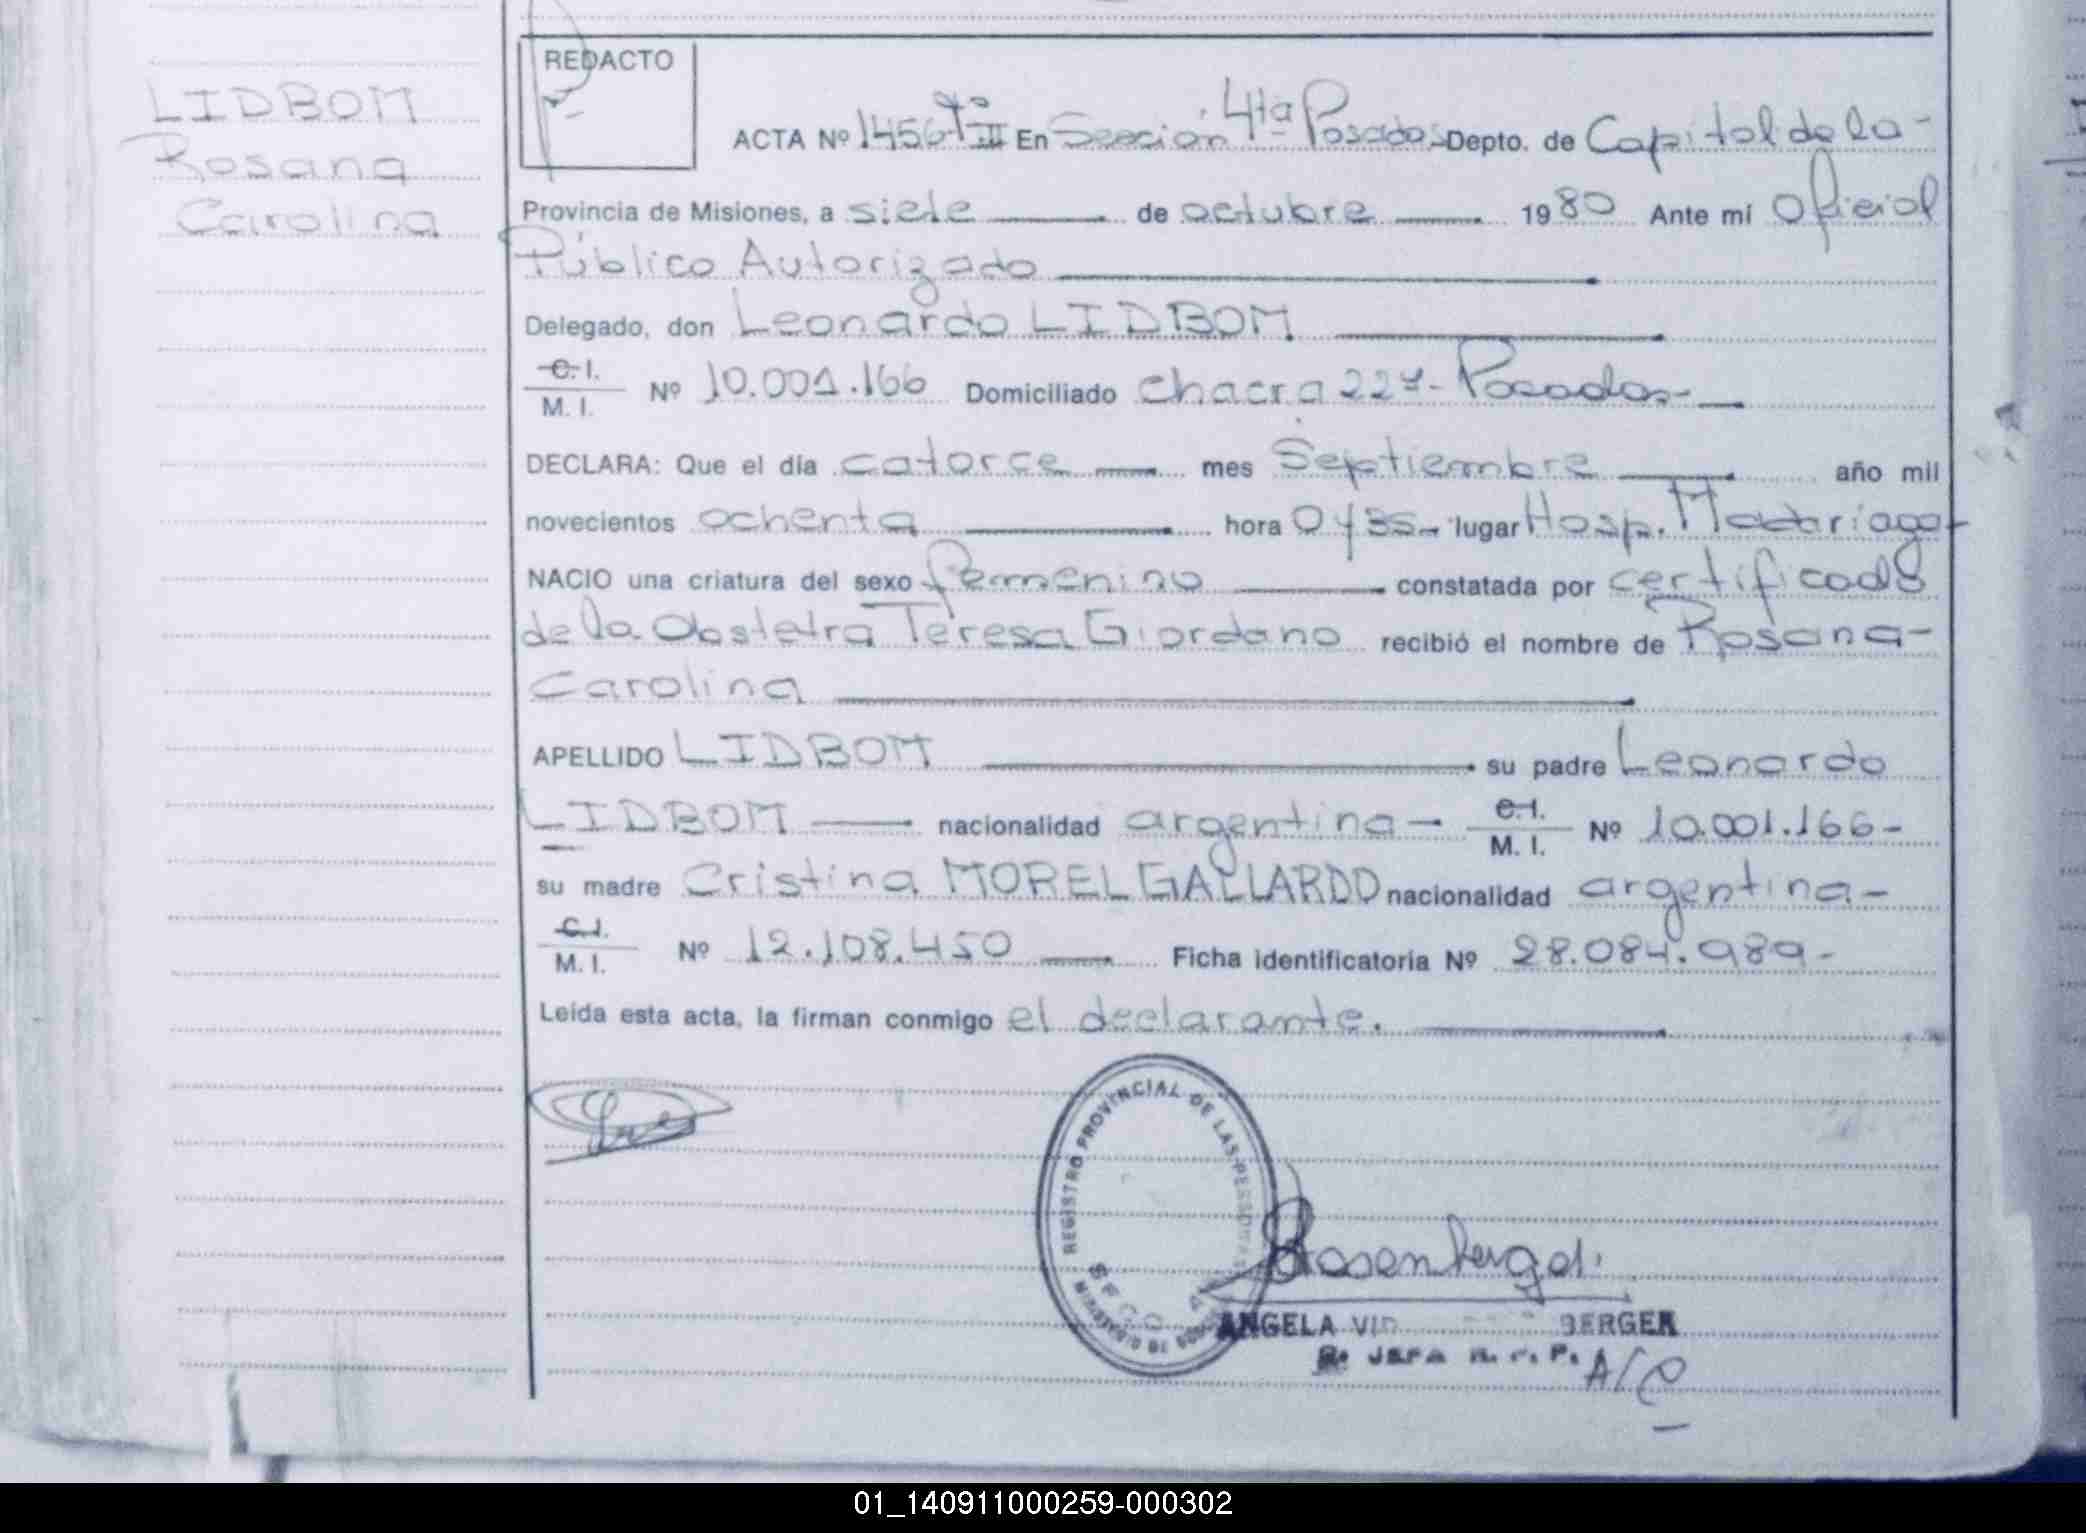 LIDBOM
Rosana
Carolina
REDACTO
ACTA Nº 1456 Tº III En Sección 4ta Posadas Depto. de Capital de la-
Provincia de Misiones, a siete de octubre 1980 Ante mí Oficial
Público Autorizado
Delegado, don Leonardo LIDBOM
C. I.
M. I.
Nº 10.001.166 Domiciliado chacra 227- Posadas-
DECLARA: Que el día catorce mes Septiembre año mil
novecientos ochenta hora 0y35- lugar Hosp. Madariaga-
NACIO una criatura del sexo femenino constatada por certificado
de la Obstetra Teresa Giordano recibió el nombre de Rosana-
Carolina
APELLIDO LIDBOM su padre Leonardo
LIDBOM nacionalidad argentina- C. I.
M. I.
Nº 10.001.166-
su madre Cristina MOREL GALLARDO nacionalidad argentina-
C. I.
M. I.
Nº 12.108.450 Ficha identificatoria Nº 28.084.989-
Leída esta acta, la firman conmigo el declarante.
REGISTRO PROVINCIAL DE LAS PERSONAS
MINISTERIO DE GOBIERNO
ANGELA BERGER
JEFA R. P. A/C
01_140911000259-000302